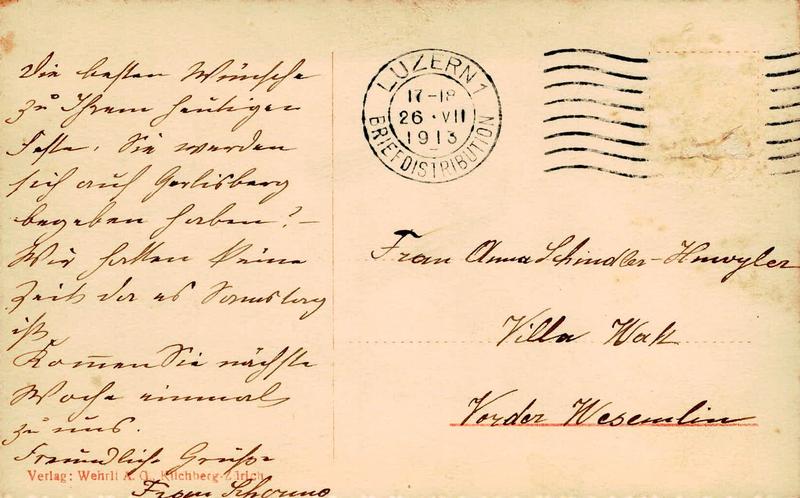 Die besten Wünsche
zu Ihrem heutigen
Feste. Sie werden
sich auf Gerlisberg
begeben haben? –
Wir hatten keine
Zeit da es Samstag
ist.
Kom̅en Sie nächste
Woche einmal
zu uns.
Freundliche Grüße
Frau
Verlag: Wehrli A. G., Kilchberg-Zürich
LUZERN 1
17-18
26 · VII
1913
BRIEFDISTRIBUTION
Frau Anna Schindler-
Villa
Vorder Wesemlin